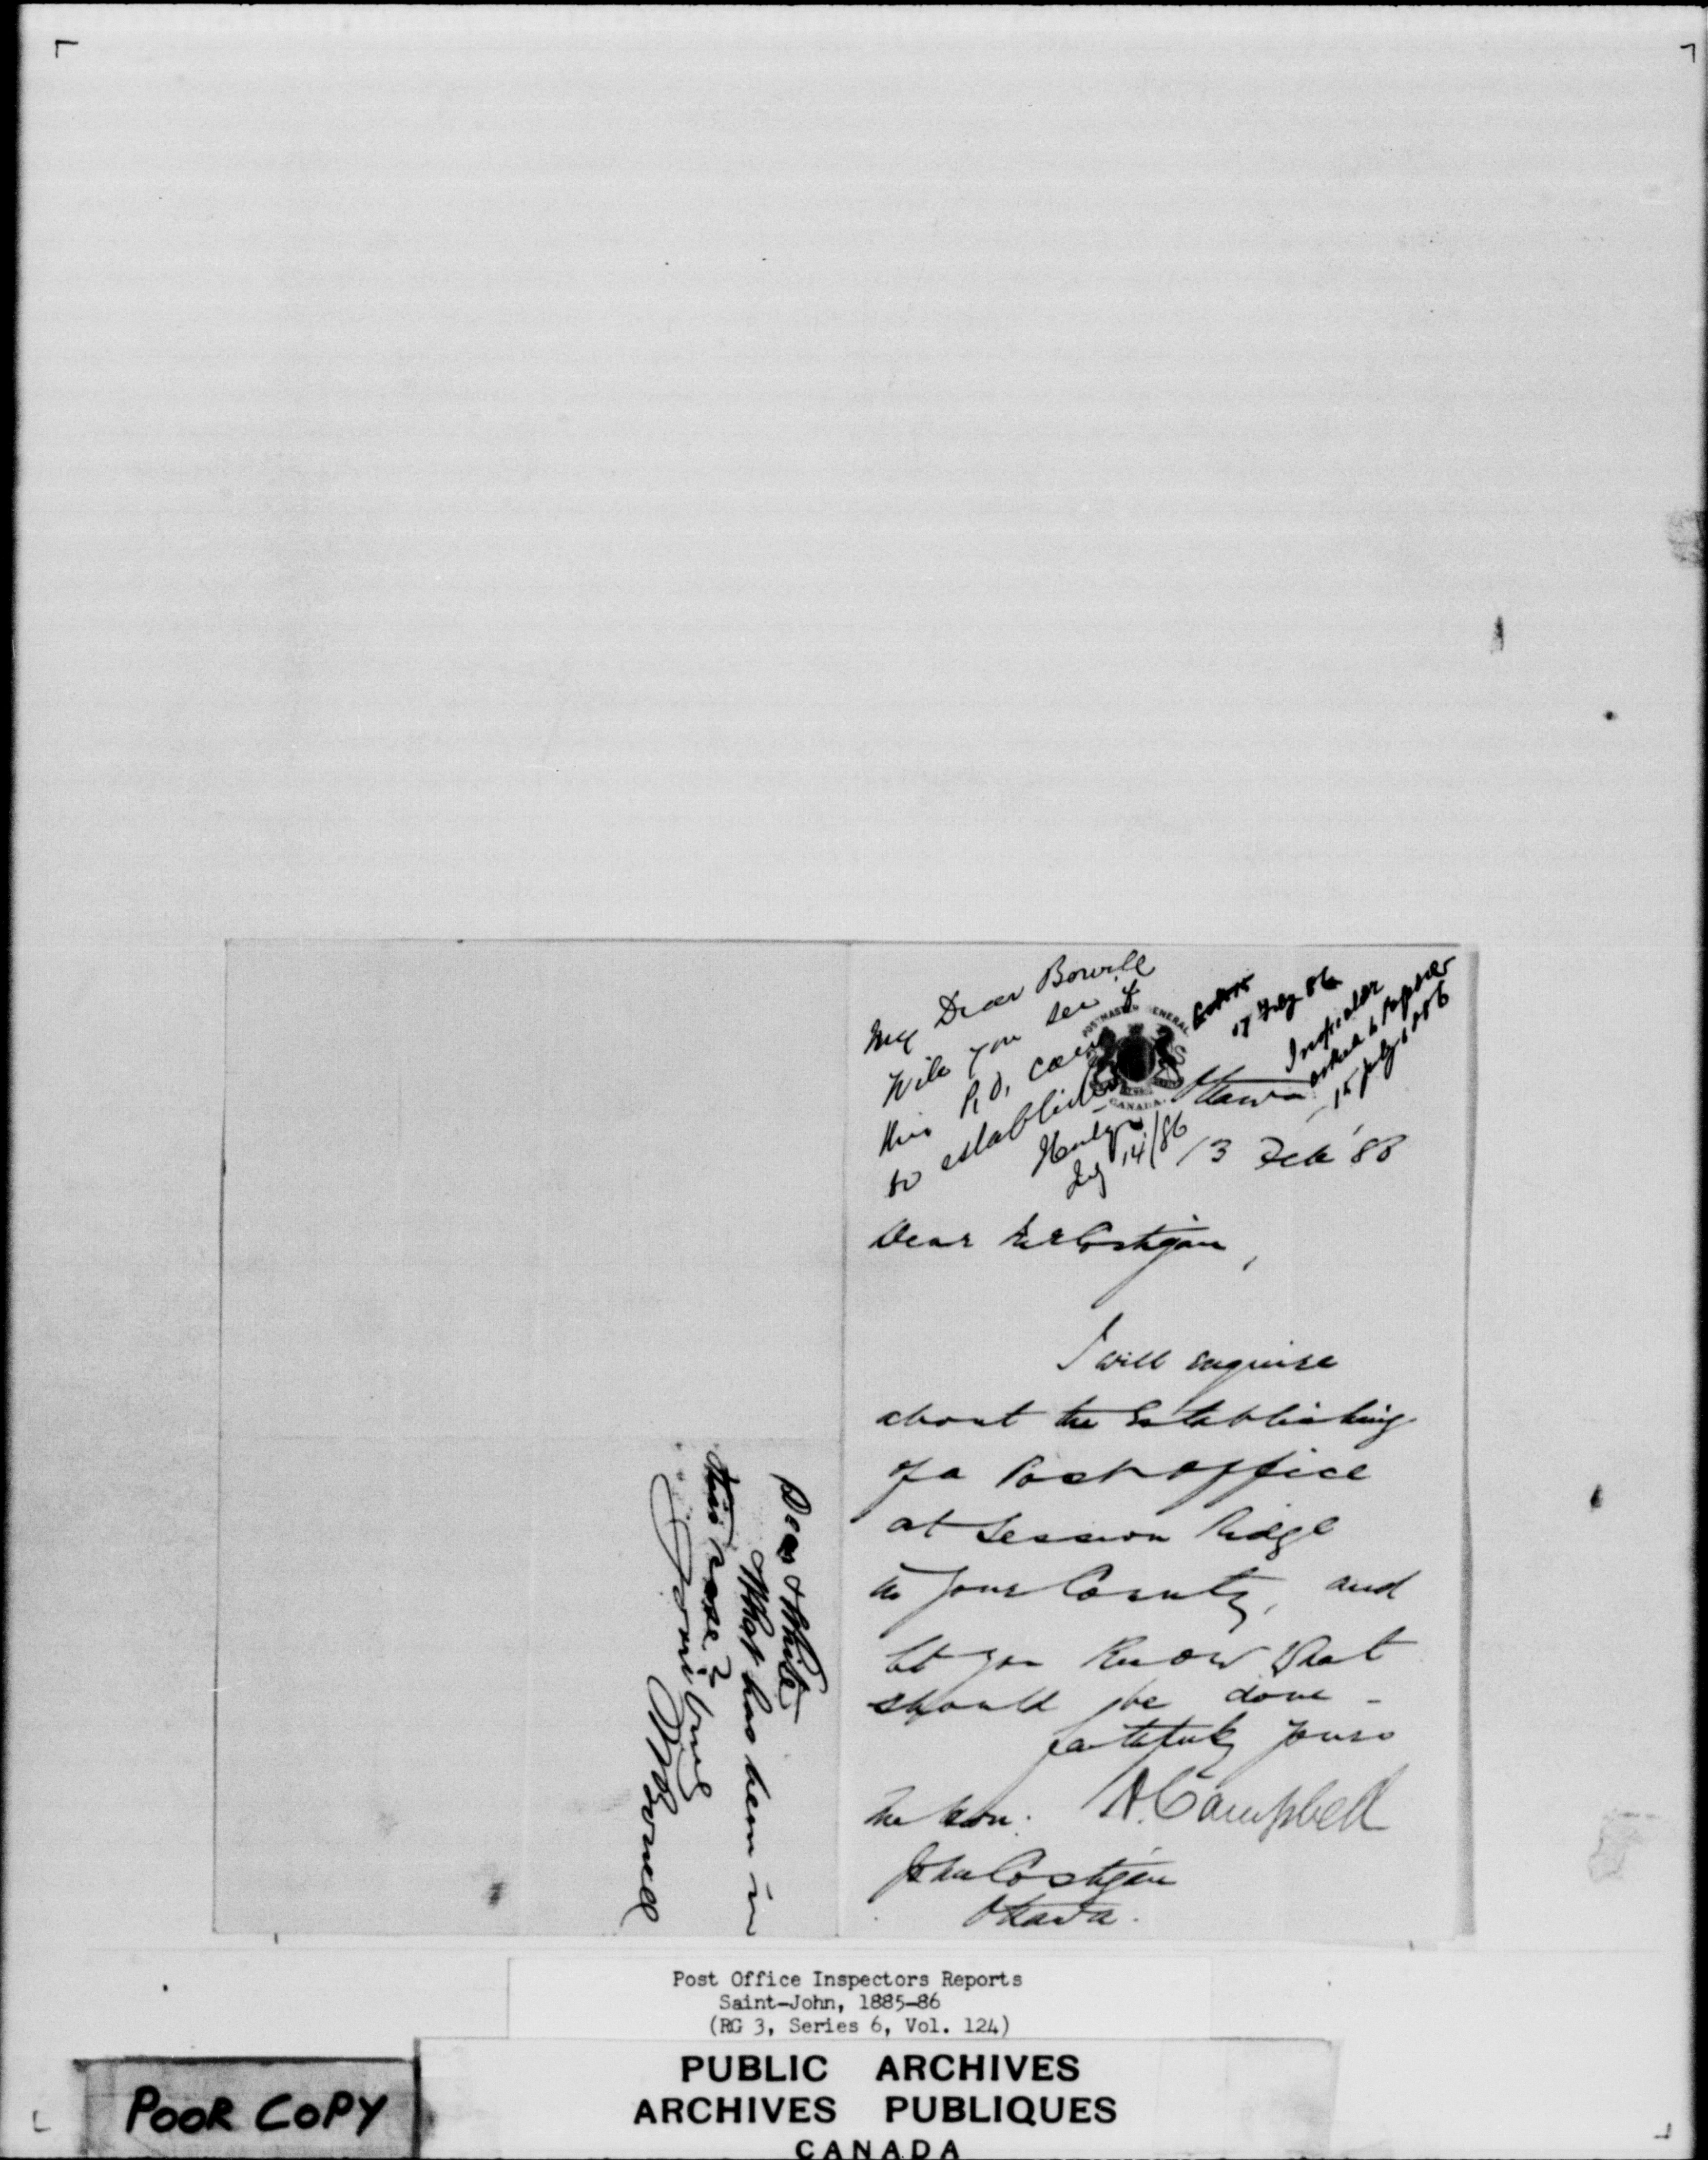 My Dear Bowell
Will you see if
this P.O. can
be established
July 14/86
17 July 86
Inspector
asked to report
15 July 1886
POSTMASTER GENERAL
CANADA.
Ottawa
13 Feb '86
Dear Mr Costigan,
I will enquire
about the Establishing
of a Post office
at Session Ridge
in your County, and
let you know what
should be done -
faithfully yours
A. Campbell
The Hon.
John Costigan
Ottawa.
Dear White
What has been in
this case?
Yours truly
M Bowell
Post Office Inspectors Reports
Saint-John, 1885-86
(RG 3, Series 6, Vol. 124)
PUBLIC ARCHIVES
ARCHIVES PUBLIQUES
CANADA
POOR COPY